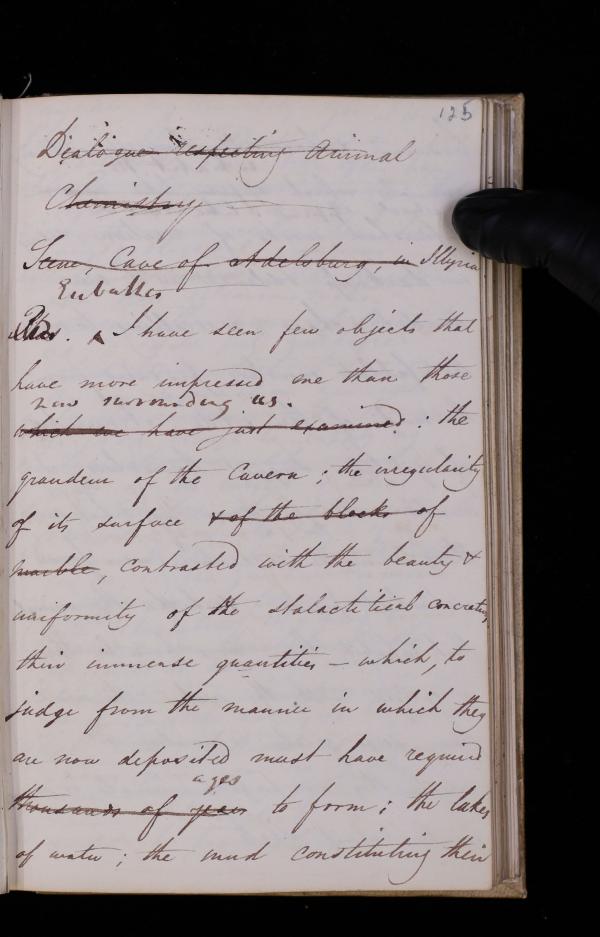 125
Dialogue respecting Animal
Chemistry
Scene, Cave of Adelsburg, in Illyria
Eubathes
I have seen few objects that
have more impressed me than those
now surrounding us.
which we have just examined : the
grandeur of the Cavern ; the irregularity
of its surface & of the blocks of
marble, contrasted with the beauty &
uniformity of the stalactitical
their immense quantities – which, to
judge from the manner in which they
are now deposited must have required
ages
thousands of years to form ; the lakes
of water ; the mud constituting their